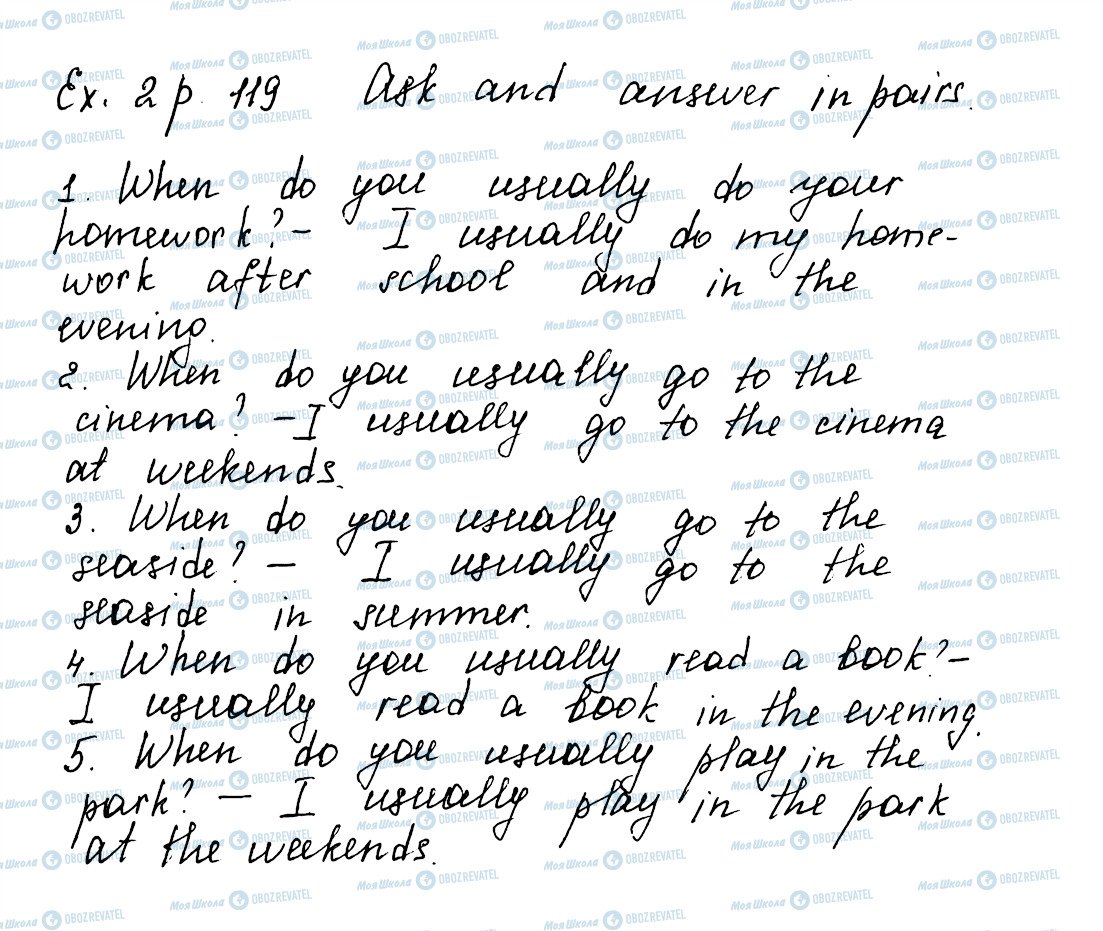 Ex. 2 p. 119 Ask and answer in pairs.
1. When do you usually do your
homework? - I usually do my home-
work after school and in the
evening.
2. When do you usually go to the
cinema? - I usually go to the cinema
at weekends.
3. When do you usually go to the
seaside? - I usually go to the
seaside in summer.
4. When do you usually read a book? -
I usually read a book in the evening.
5. When do you usually play in the
park? - I usually play in the park
at the weekends.
Моя Школа OBOZREVATEL